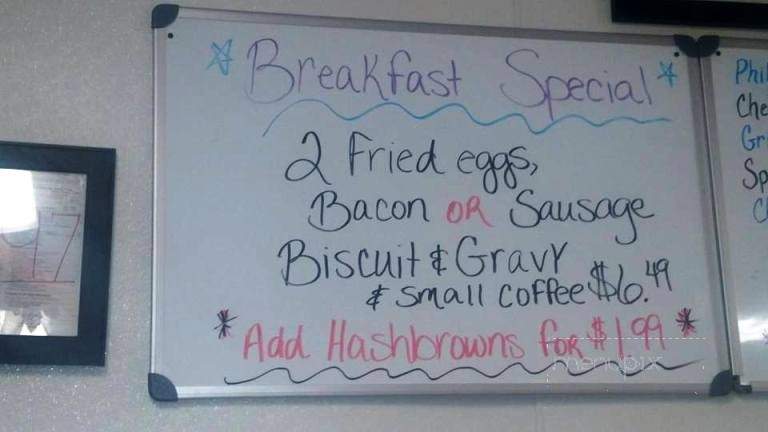 Breakfast Special
2 Fried eggs,
Bacon OR Sausage
Biscuit & Gravy
& small coffee $6.49
* Add Hashbrowns for $1.99 *
menupix
47